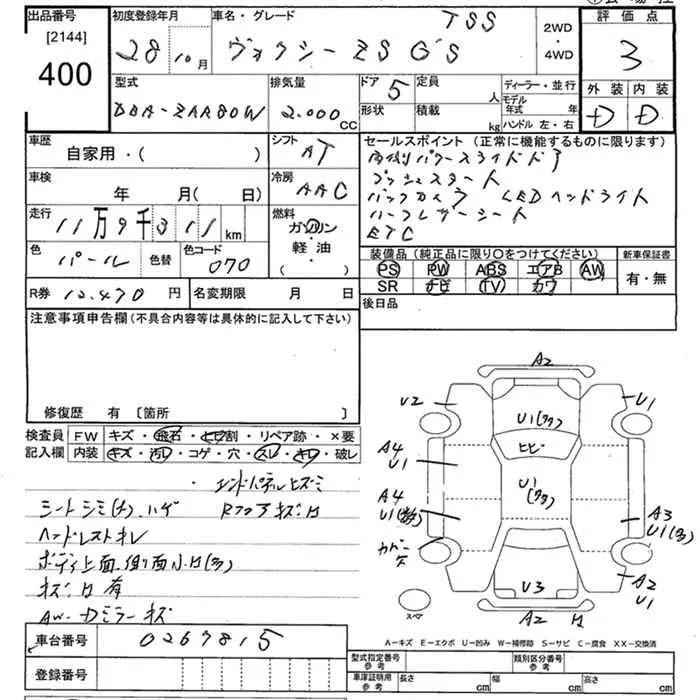 出品番号 初度登録年月 車名・グレード TSS 2WD・4WD 評価点
[2144]
400 28 10月 ヴォクシー ZS G'S 3
型式 排気量 ドア 5 定員 人 ディーラー・並行 外装 内装
DBA-ZRR80W 2.000 CC 形状 積載 kg モデル年式 年 ハンドル 左・右 D D
車歴 自家用・( ) シフト AT セールスポイント(正常に機能するものに限ります)
両側パワースライドドア
車検 年 月(日) 冷房 AAC プッシュスタート
バックカメラ LEDヘッドライト
走行 11万9千311km 燃料 ガソリン 軽・油 ・ ハーフレザーシート
ETC
色 パール 色替 色コード 070 装備品(純正品に限り○をつけてください) 新車保証書
PS PW ABS エアB AW 有・無
R券 12.470円 名変期限 月 日 SR ナビ TV カワ
注意事項申告欄(不具合内容等は具体的に記入して下さい) 後日品
修復歴 有 [箇所 ]
検査員記入欄 FW キズ・飛石・ヒビ割・リペア跡・×要
内装 キズ・汚レ・コゲ・穴・スレ・キレ・破レ
・エンドパネルヒズミ
シートシミ(大)、ハゲ Rフロアキズサ
ヘッドレストキレ
ボディ上面、側面小サ(多)
キズサ有
AW・Dミラーキズ
車台番号 0267815
登録番号
A2
U2 U1
U1(多)
ヒビ
A4 U1
U1(多)
A4 U1(多) A3 U1(多)
カバーキズ
U3 A2 U1
スペア A2 サ
A－キズ E－エクボ U－凹み W－補修跡 S－サビ C－腐食 XX－交換済
型式指定番号 参考 類別区分番号 参考
車庫証明用 参考 長さ cm 幅 cm 高さ cm